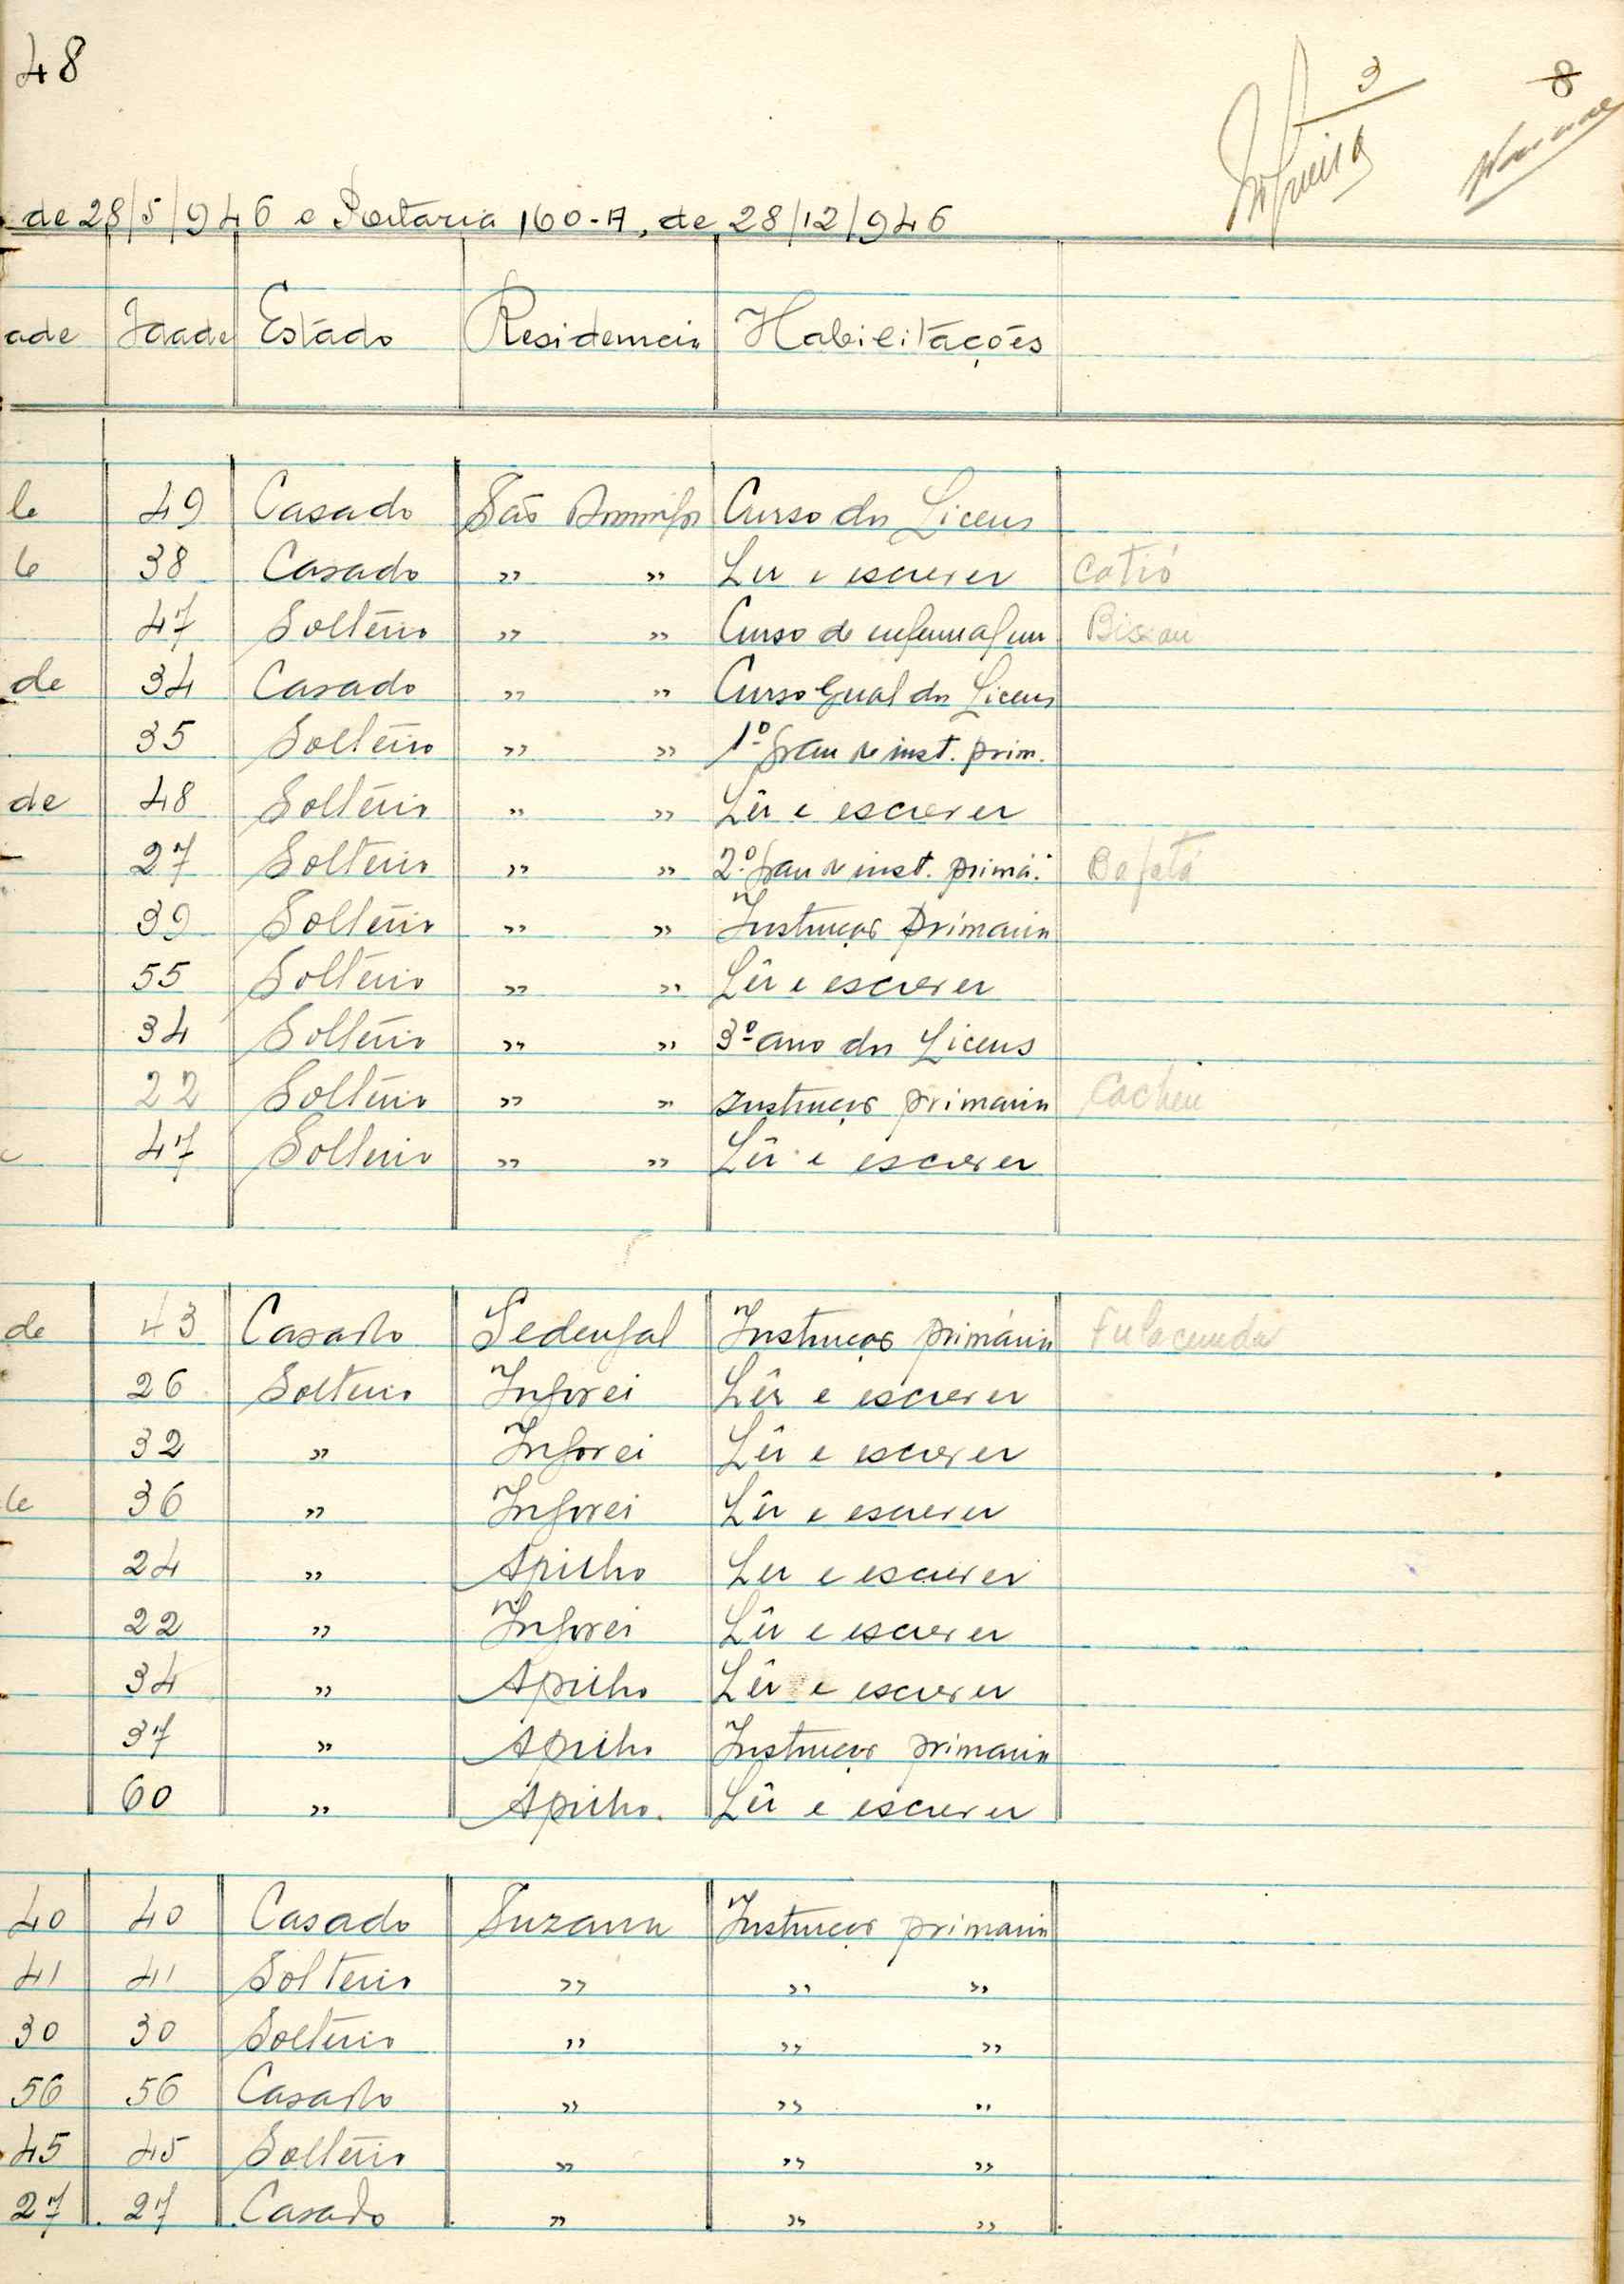 48
3
8
de 28/5/946 e Portaria 160-A, de 28/12/946
ade Idade Estado Residencia Habilitações
le 49 Casado São Domingos Curso do Liceu
le 38 Casado " " Ler e escrever Catió
47 Solteiro " " Curso de enfermagem Bissau
de 34 Casado " " Curso Geral do Liceu
35 Solteiro " " 1º grau de inst. prim.
de 48 Solteiro " " Lêr e escrever
27 Solteiro " " 2º grau de inst. primá. Bafatá
39 Solteiro " " Instrução primaria
55 Solteiro " " Lêr e escrever
34 Solteiro " " 3º ano do Liceu
22 Solteiro " " Instrução primaria Cacheu
47 Solteiro " " Lêr e escrever
de 43 Casado Sedengal Instrução primária Fulacunda
26 Solteiro Ingorei Lêr e escrever
32 " Ingorei Lêr e escrever
le 36 " Ingorei Lêr e escrever
24 " Apilho Ler e escrever
22 " Ingorei Lêr e escrever
34 " Apilho Lêr e escrever
37 " Apilho Instrução primaria
60 " Apilho Lêr e escrever
40 40 Casado Suzana Instrução primaria
41 41 Solteiro " " "
30 30 Solteiro " " "
56 56 Casado " " "
45 45 Solteiro " " "
27 27 Casado " " "